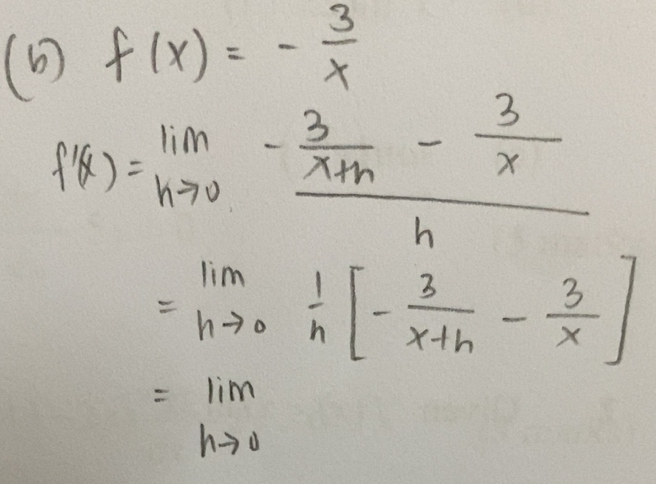 (b) f(x) = - 3/x
f'(x) = lim h→0 (- 3/(x+h) - 3/x)/h
= lim h→0 1/h [- 3/(x+h) - 3/x]
= lim h→0